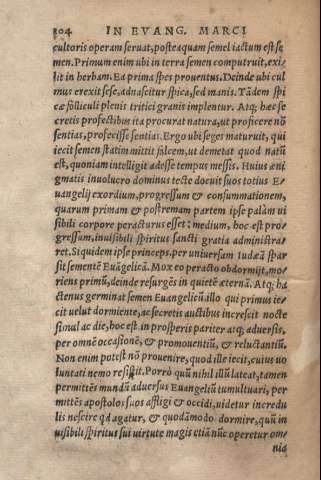 304 IN EVANG. MARCI
cultoris operam seruat, posteaquam semel iactum est se
men. Primum enim ubi in terra semen computruit, exi/
lit in herbam. Ea prima spes prouentus. Deinde ubi cul
mus erexit sese, adnascitur spica, sed manis. Tādem spi
cæ folliculi plenis tritici granis implentur. Atq; hæc se
cretis profectibus ita procurat natura, ut proficere nō
sentias, profecisse sentias. Ergo ubi seges maturuit, qui
iecit semen statim mittit falcem, ut demetat quod natū
est, quoniam intelligit adesse tempus messis. Huius æni
gmatis inuolucro dominus tecte docuit suos totius E/
uangelij exordium, progressum & consummationem,
quarum primam & postremam partem ipse palàm ui
sibili corpore peracturus esset: medium, hoc est pro/
gressum, inuisibili spiritus sancti gratia administra/
ret. Siquidem ipse princeps, per uniuersam Iudæā spar
sit sementē Euāgelicā. Mox eo peracto obdormijt, mo/
riens primū, deinde resurgēs in quietē æternā. Atq; ha
ctenus germinat semen Euangelicū illo qui primus ie/
cit uelut dormiente, ac secretis auctibus increscit nocte
simul ac die, hoc est in prosperis pariter atq; aduersis,
per omnē occasionē, & promouentiū, & reluctantiū.
Non enim potest nō prouenire, quod ille iecit, cuius uo
luntati nemo resistit. Porrò quū nihil illū lateat, tamen
permittēs mundū aduersus Euangeliū tumultuari, per
mittēs apostolos suos affligi & occidi, uidetur incredu
lis nescire qd agatur, & quodāmodo dormire, quū in
uisibili spiritus sui uirtute magis etiā nūc operetur om/
nia